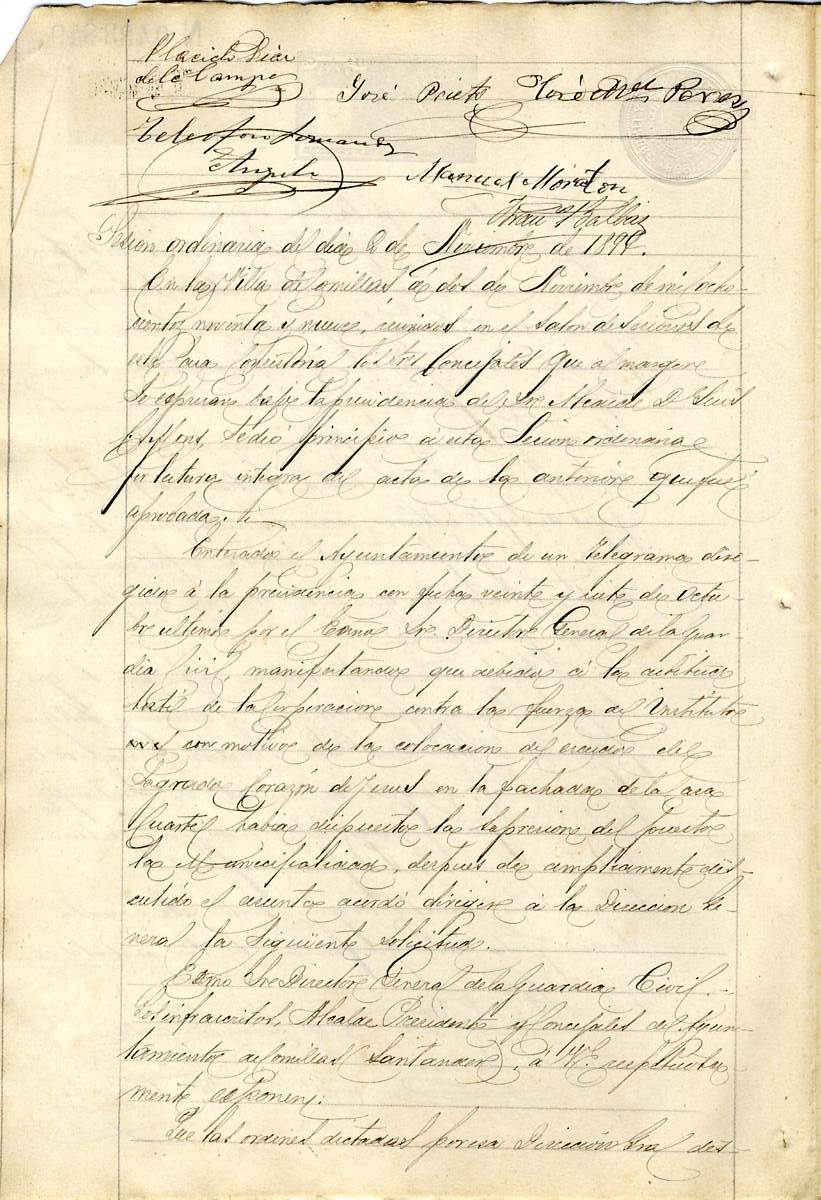 Placido Diaz
de la Campa
José Prieto José
Telesforo Fernandez
Angulo
Manuel Moraton
Balbas
Sesion ordinaria del dia 2 de Noviembre de 1899.
En la Villa de Comillas á dos de Noviembre de mil ocho-
cientos noventa y nueve, reunidos en el Salon de Sesiones de
esta Casa Consistorial los Sres Concejales que al margen
se espresan bajo la presidencia del Sr Alcalde D Luis
se dió principio á esta Sesion ordinaria
por lectura integra del acta de la anterior que fué
aprobada.
Enterados el Ayuntamiento de un telegrama diri-
gido á la presidencia con fecha veinte y siete de Octu-
bre ultimo por el Exmo Sr Director General de la Guar-
dia Civil, manifestando que debido á la actitud
hostil de la Corporacion contra la fuerza del Instituto
con motivo de la colocacion del escudo del
Sagrado Corazón de Jesus en la fachada de la Casa
Cuartel habia dispuesto la supresion del puesto
la Municipalidad, despues de ampliamente dis-
cutido el asunto acordó dirigir á la Direccion Ge-
neral la siguiente solicitud.
Exmo Sr Director General de la Guardia Civil.-
Los infrascritos, Alcalde Presidente y Concejales del Ayun-
tamiento de Comillas (Santander), á V.E. respetuosa-
mente esponen:
Que las ordenes dictadas por esa Dirección Gral des-